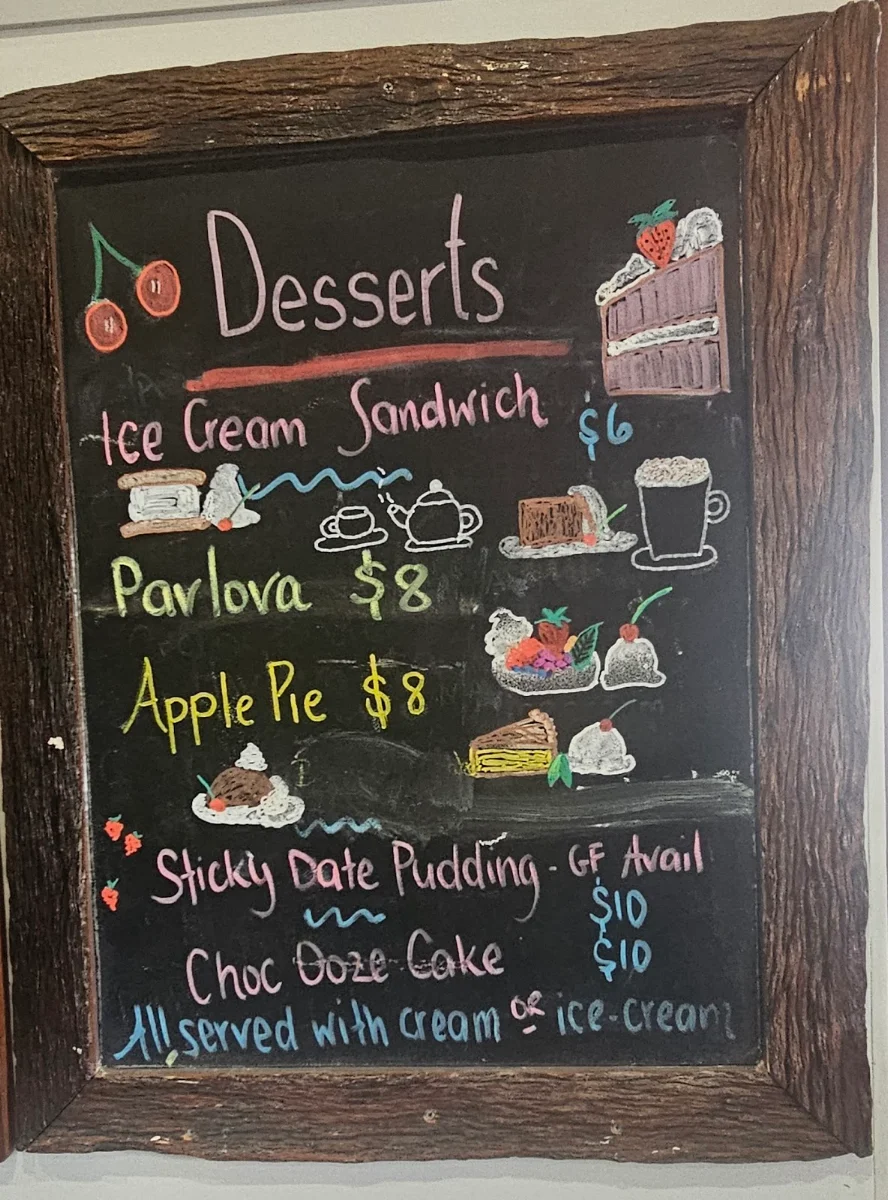 Desserts
Ice Cream Sandwich $6
Pavlova $8
Apple Pie $8
Sticky Date Pudding - GF Avail
$10
Choc Ooze Cake $10
All served with cream OR ice-cream